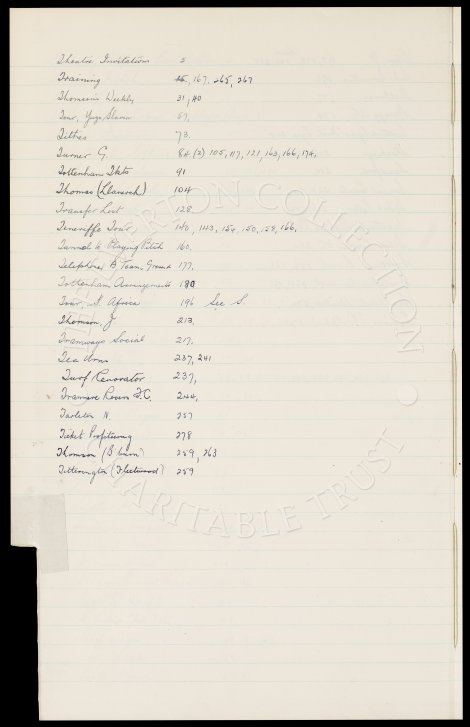 Theatre Invitations 5
Training 15, 167, 265, 267
Thomson's Weekly 31, 40
Tour, Yugo Slavia 57,
Tithes 73.
Turner G. 84 (2) 105, 117, 121, 163, 166, 174,
Tottenham Tkts 91
Thomas (Llanerch) 104
Transfer List 128
Teneriffe Tour, 140, 143, 154, 150, 158, 166,
Tunnel to Playing Pitch 160.
Telephones, B Team. Ground 177,
Tottenham Arrangements 180
Tour, S. Africa 196 See S.
Thomson, J. 213,
Tramways Social 217.
Tea Urns 237, 241
Turf Renovator 237,
Tranmere Rovers F.C. 244,
Tarleton N. 257
Ticket Profiteering 278
Thomson (B'ham) 259, 263
Titterington (Fleetwood) 259
THE EVERTON COLLECTION • CHARITABLE TRUST •